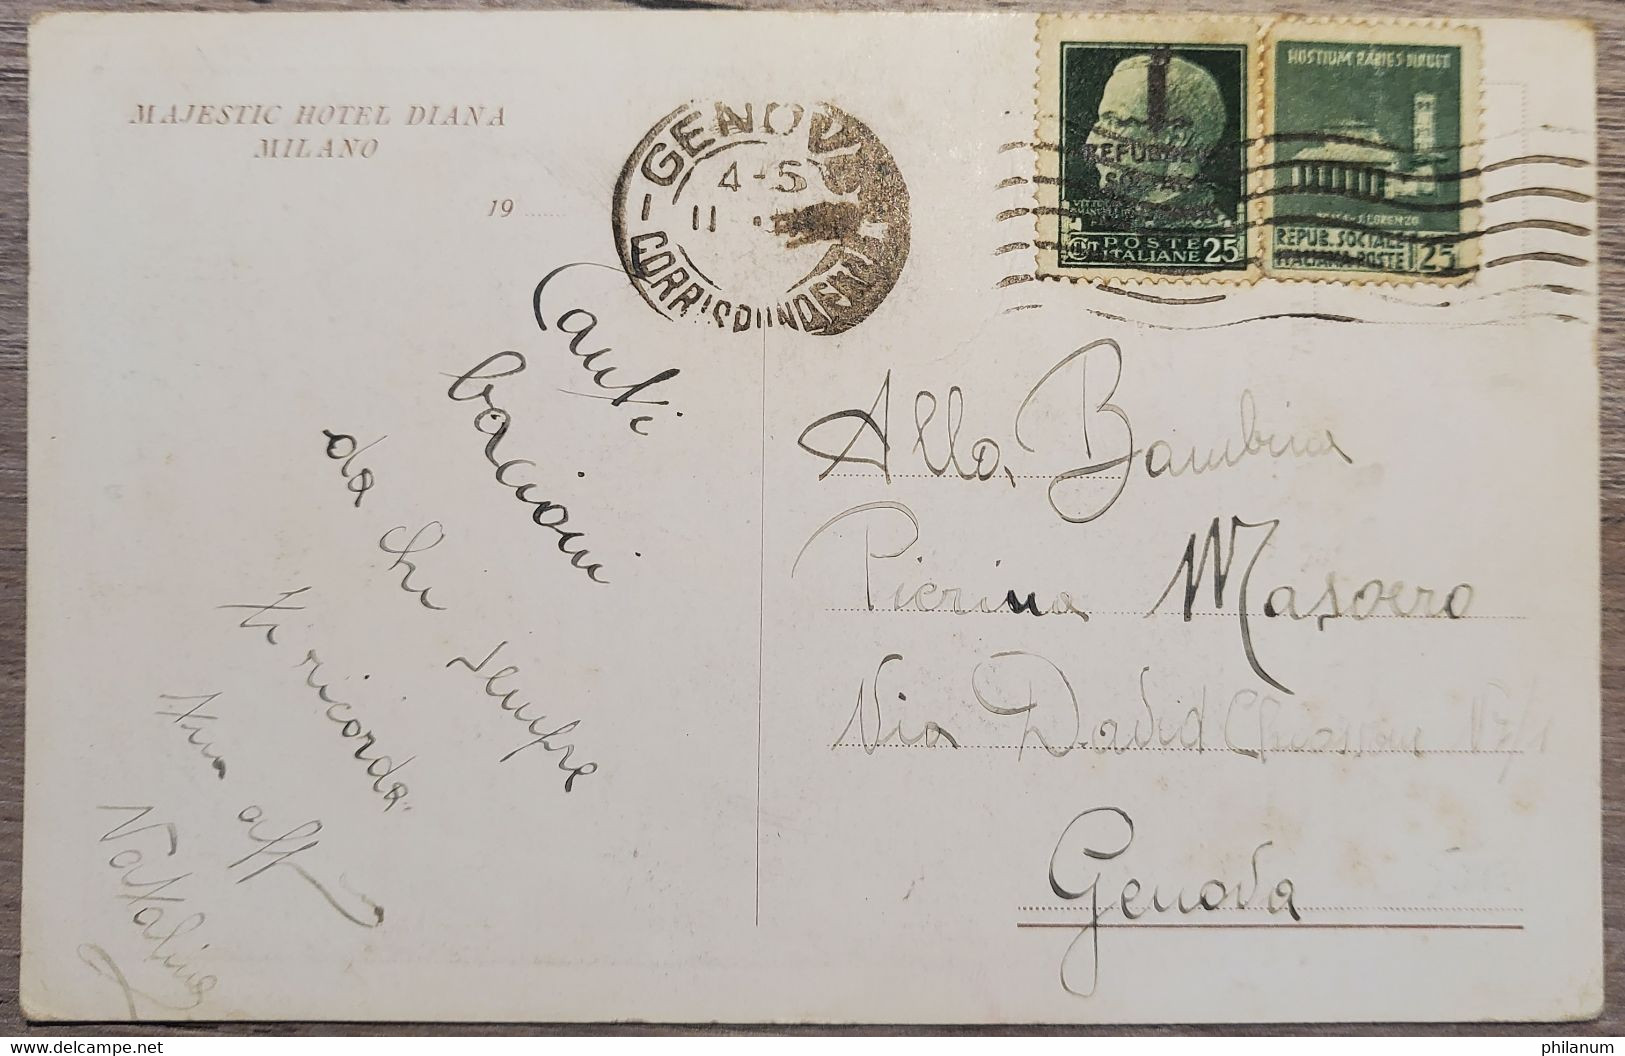 MAJESTIC HOTEL DIANA
MILANO
19
GENOVA
4-5
11
CORRISPONDENZE
REPUBBLICA
SOCIALE
POSTE
ITALIANE 25
HOSTIUM RABIES DIRUIT
ROMA-S. LORENZO
REPUB. SOCIALE
ITALIANA-POSTE 25
Tanti
bacioni
da chi
sempre
ti ricorda
aff
Natalina
Alla Bambina
Pierina Masoero
Via David Chiossone 17/1
Genova
www.delcampe.net
philanum